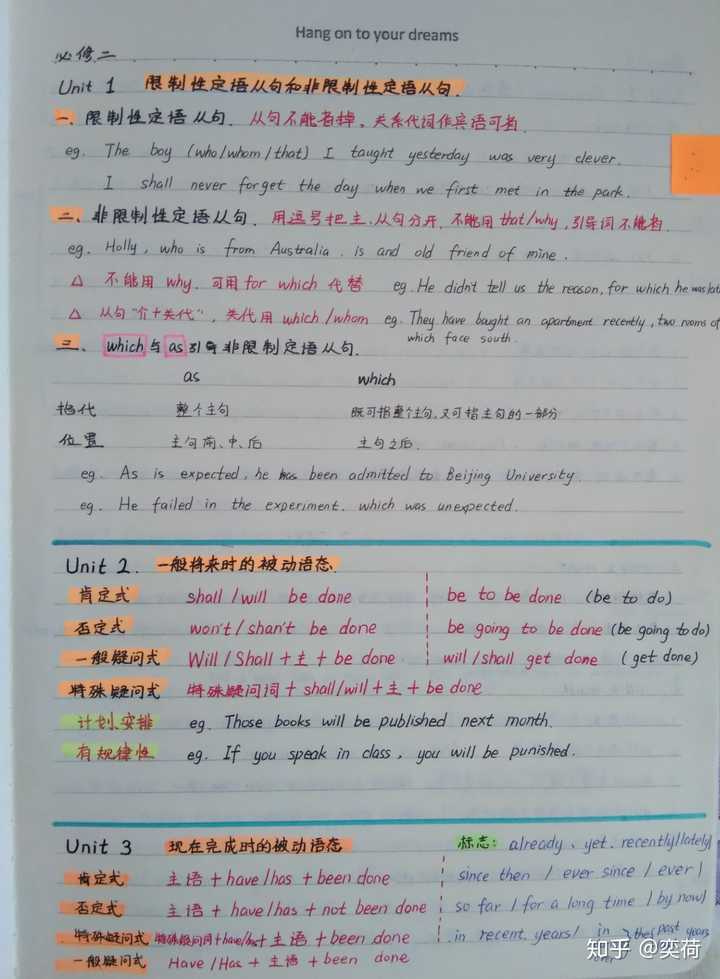 Hang on to your dreams
必修二
Unit 1 限制性定语从句和非限制性定语从句.
一、限制性定语从句. 从句不能省掉、关系代词作宾语可省.
eg. The boy (who/whom/that) I taught yesterday was very clever.
I shall never forget the day when we first met in the park.
二、非限制性定语从句. 用逗号把主、从句分开. 不能用 that/why, 引导词不能省.
eg. Holly, who is from Australia, is and old friend of mine.
△ 不能用 why. 可用 for which 代替 eg. He didn't tell us the reason, for which he was lat
△ 从句"介+关代", 关代用 which/whom eg. They have bought an apartment recently, two rooms of
which face south.
三、which与as引导非限制定语从句.
as which
指代 整个主句 既可指整个主句,又可指主句的一部分
位置 主句前、中、后 主句之后.
eg. As is expected, he has been admitted to Beijing University.
eg. He failed in the experiment, which was unexpected.
Unit 2. 一般将来时的被动语态.
肯定式 shall/will be done be to be done (be to do)
否定式 won't/shan't be done be going to be done (be going to do)
一般疑问式 Will/Shall+主+be done will/shall get done (get done)
特殊疑问式 特殊疑问词+shall/will+主+be done
计划、安排 eg. Those books will be published next month.
有规律性 eg. If you speak in class, you will be punished.
Unit 3 现在完成时的被动语态 标志: already、yet、recently/lately/
肯定式 主语+have/has+been done since then / ever since / ever /
否定式 主语+have/has+not been done so far / for a long time / by now/
特殊疑问式 特殊疑问词+have/has+主语+been done in recent years/ in the past years
一般疑问式 Have/Has+主语+been done
知乎 @奕荷